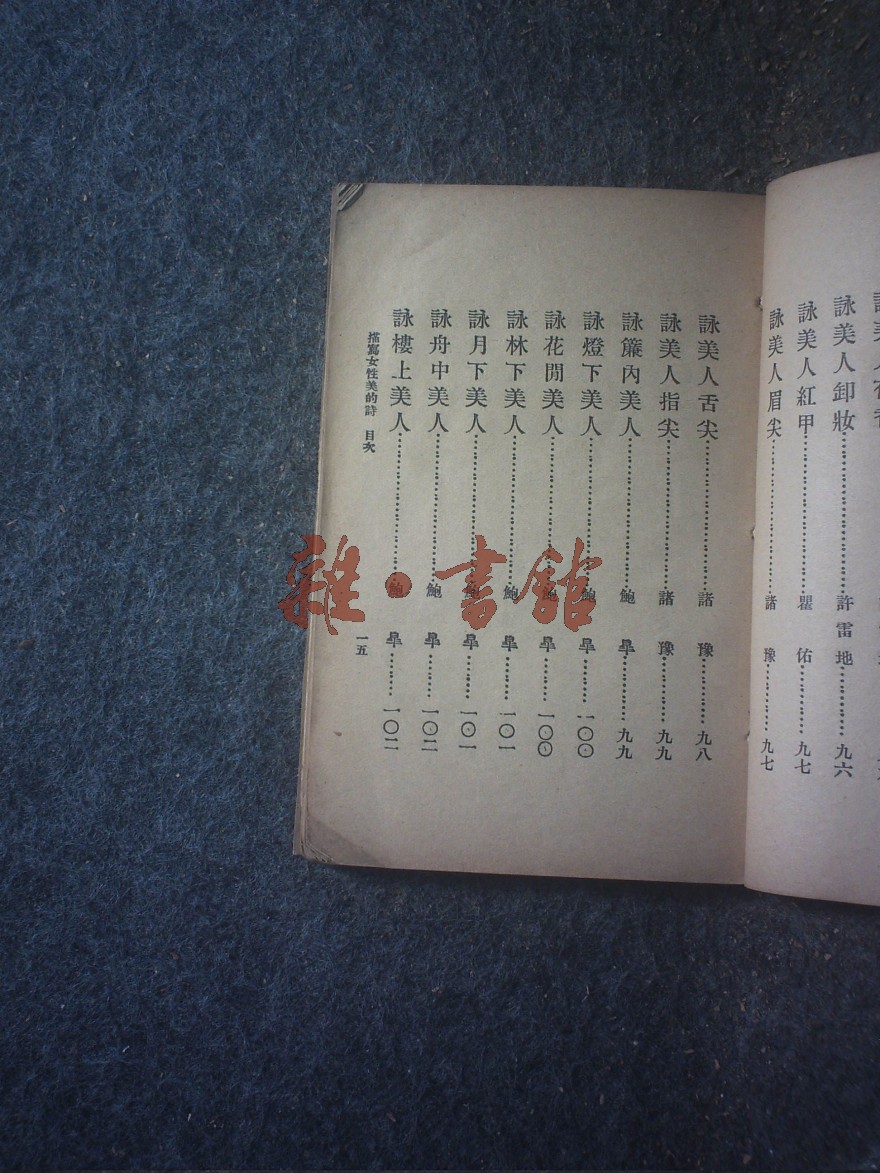 詠美人卸妝…………許雷地………九六
詠美人紅甲…………瞿佑………九七
詠美人眉尖…………諸豫………九七
詠美人舌尖…………諸豫………九八
詠美人指尖…………諸豫………九九
詠簾內美人…………鮑皐………九九
詠燈下美人…………鮑皐………一〇〇
詠花閒美人…………鮑皐………一〇〇
詠林下美人…………鮑皐………一〇一
詠月下美人…………鮑皐………一〇一
詠舟中美人…………鮑皐………一〇二
詠樓上美人…………鮑皐………一〇二
描寫女性美的詩 目次
一五
雜·書館